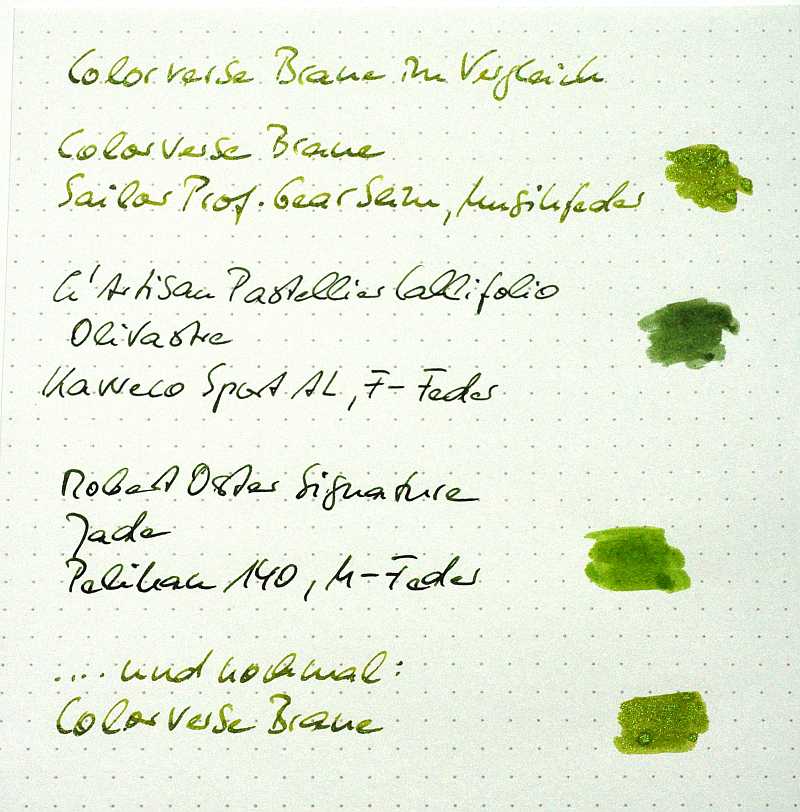 Colorverse Brane im Vergleich
Colorverse Brane
Sailor Prof. Gear Slim, Musikfeder
L'Artisan Pastellier Callifolio
Olivastre
Kaweco Sport AL, F-Feder
Robert Oster Signature
Jade
Pelikan 140, M-Feder
.... und nochmal:
Colorverse Brane